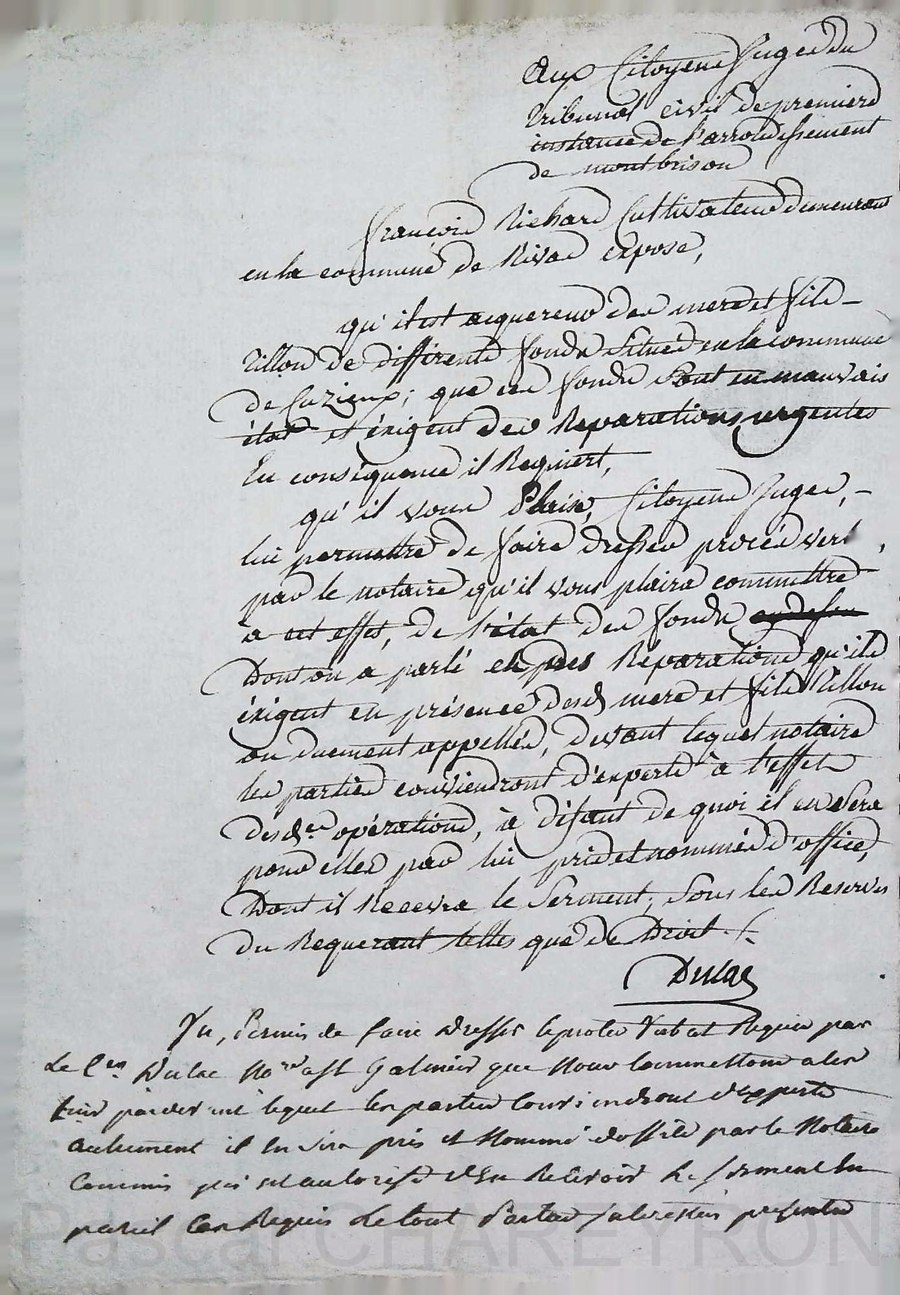 Aux Citoyens Juges du
Tribunal civil de premiere
instance de l'arrondissement
de montbrison
françois Richard Cultivateur demeurant
en la commune de Rivas expose,
qu'il est acquereur des mere et fils -
Tillon de differents fonds situés en la commune
de Cuzieux; que ces fonds sont en mauvais
état et éxigent des Reparations urgentes
En consequence il Requiert,
qu'il vous Plaise, Citoyens Juges, -
lui permettre de faire dresser procès verbal
par le notaire qu'il vous plaira commettre
a cet effet, de l'état des fonds
Dont on a parlé et des Réparations qu'ils
éxigent en présence desd mere et fils Tillon
ou duement appellés, devant lequel notaire
les parties conviendront d'experts à l'effet
desd. opérations, à défaut de quoi il en Sera
pour elles par lui pris et nommés d'office,
Dont il Recevra le Serment, Sous les Reserves
du Requerant telles que de Droit ./.
Dulac
Vu, Permis de faire Dresser le proces Verbal Requis par
Le Cen Dulac No.re a St Galmier que Nous Commettons a ces
fins pardevant lequel les parties Conviendront d'experts
autrement il en sera pris et Nommé doffice par le Notaire
Commis qui est autorisé d'En Recevoir le serment En
pareil Cas Requis Le tout Partie presente
Pascal CHAREYRON